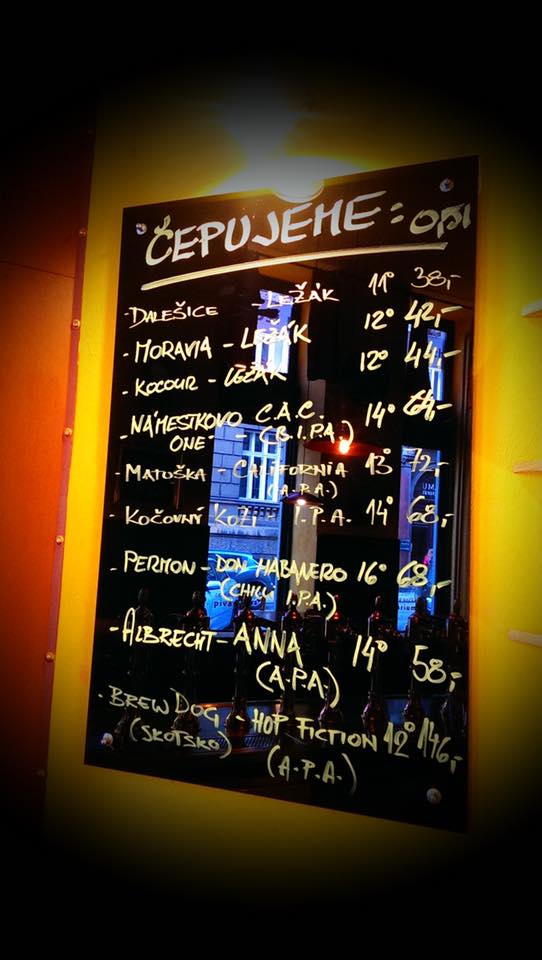 ČEPUJEME:
- DALEŠICE - LEŽÁK 11° 38,-
- MORAVIA - LEŽÁK 12° 42,-
- KOCOUR - LEŽÁK 12° 44,-
- NÁMESTKOVO C.A.C. 14° 64,-
ONE - - (B.I.P.A.)
- MATUŠKA - CALIFORNIA 13° 72,-
(A.P.A.)
- KOČOVNÍ KOZI - I.P.A. 14° 68,-
- PERMON - DON HABANERO 16° 68,-
(CHILLI I.P.A.)
- ALBRECHT - ANNA 14° 58,-
(A.P.A.)
- BREWDOG - HOP FICTION 12° 146,-
(SKOTSKO) (A.P.A.)